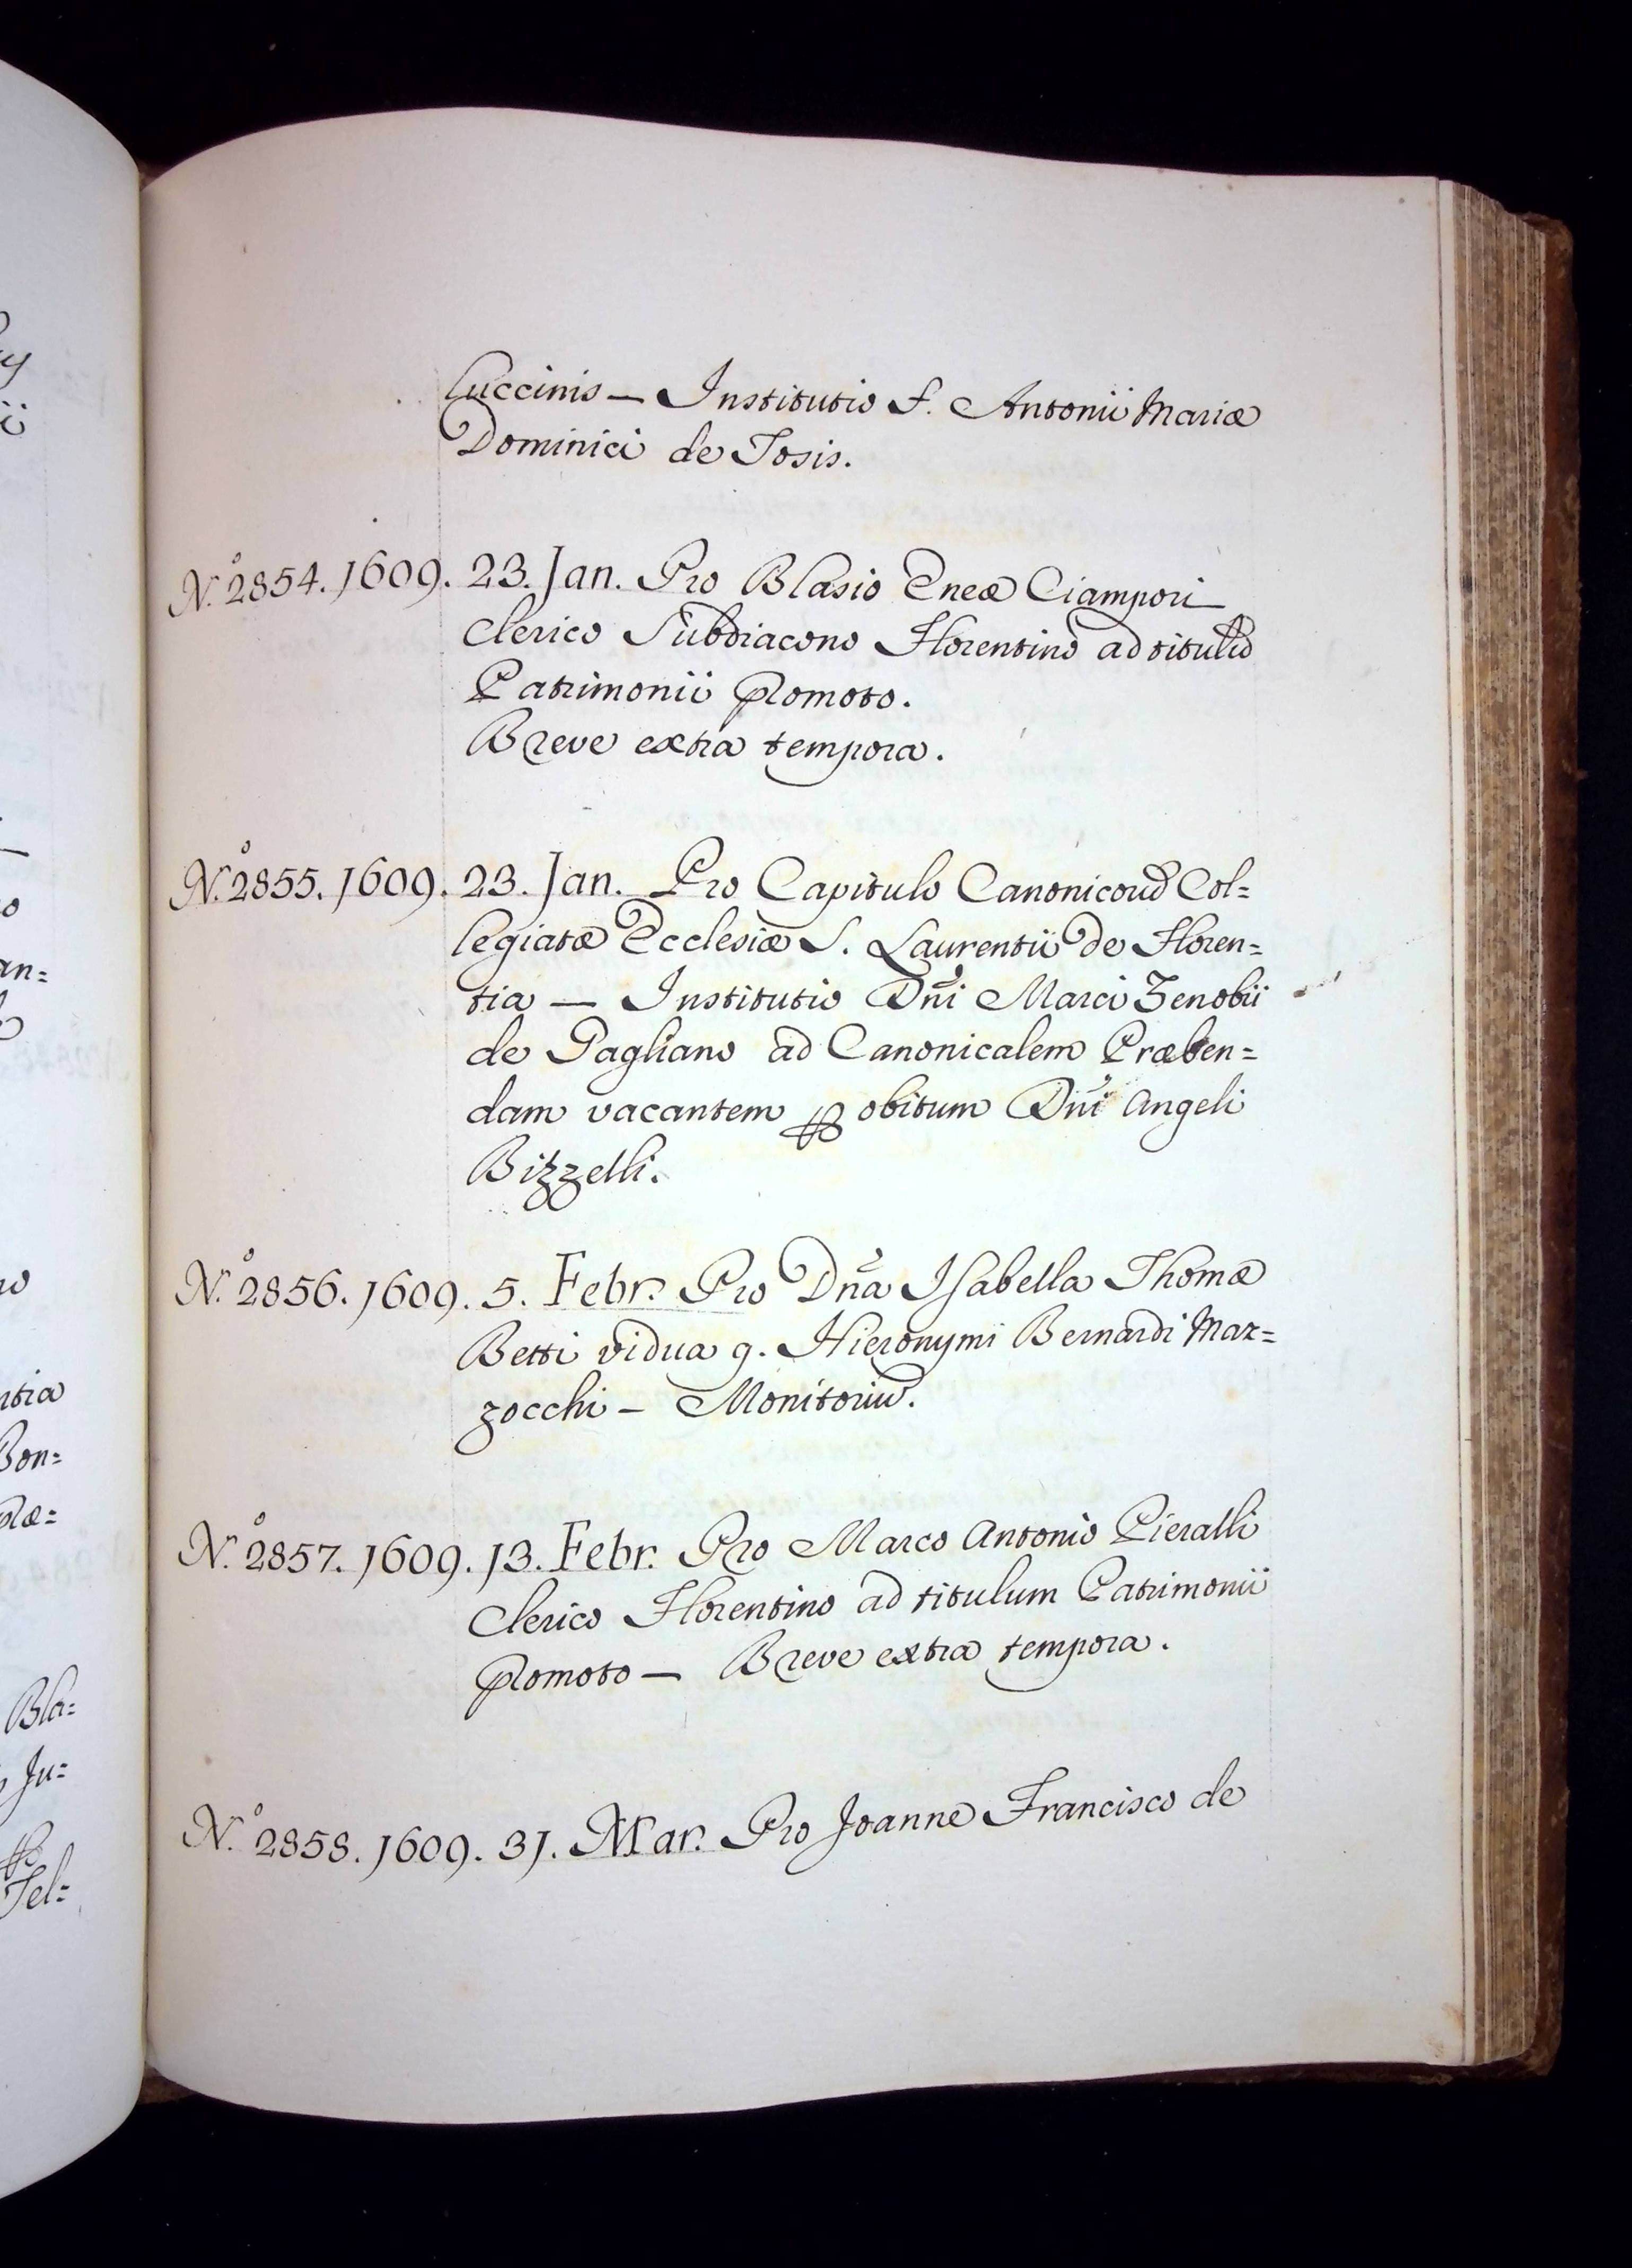 Luccinis — Institutio S. Antonii Mariæ
Dominici de Tosis.
N.º 2854. 1609. 23. Jan. Pro Blasio Eneæ Ciampori
Clerico Subdiacono Florentino ad titulũ
Patrimonii promoto.
Breve extra tempora.
N.º 2855. 1609. 23. Jan. Pro Capitulo Canonicorũ Col=
legiatæ Ecclesiæ S. Laurentii de Floren=
tia — Institutio Dñi Marci Zenobii
de Gagliano ad Canonicalem Præben=
dam vacantem ꝑ obitum Dñi Angeli
Bizzelli.
N.º 2856. 1609. 5. Febr. Pro Dña Isabella Thomæ
Betti vidua q. Hieronymi Bernardi Maz=
zocchi — Monitoriũ.
N.º 2857. 1609. 13. Febr. Pro Marco Antonio Pieralli
Clerico Florentino ad titulum Patrimonii
promoto — Breve extra tempora.
N.º 2858. 1609. 31. Mar. Pro Joanne Francisco de